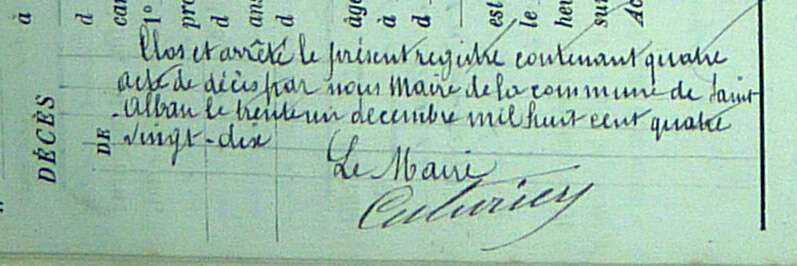 à
d
car
1°
pro
d
ans
d
âge
à
d
est
le
heu
sur
Ac
Clos et arrêté le présent registre contenant quatre
acte de décès par nous Maire de la commune de Saint
-Alban le trente un décembre mil huit cent quatre
vingt-dix
DÉCÈS
DE
Le Maire